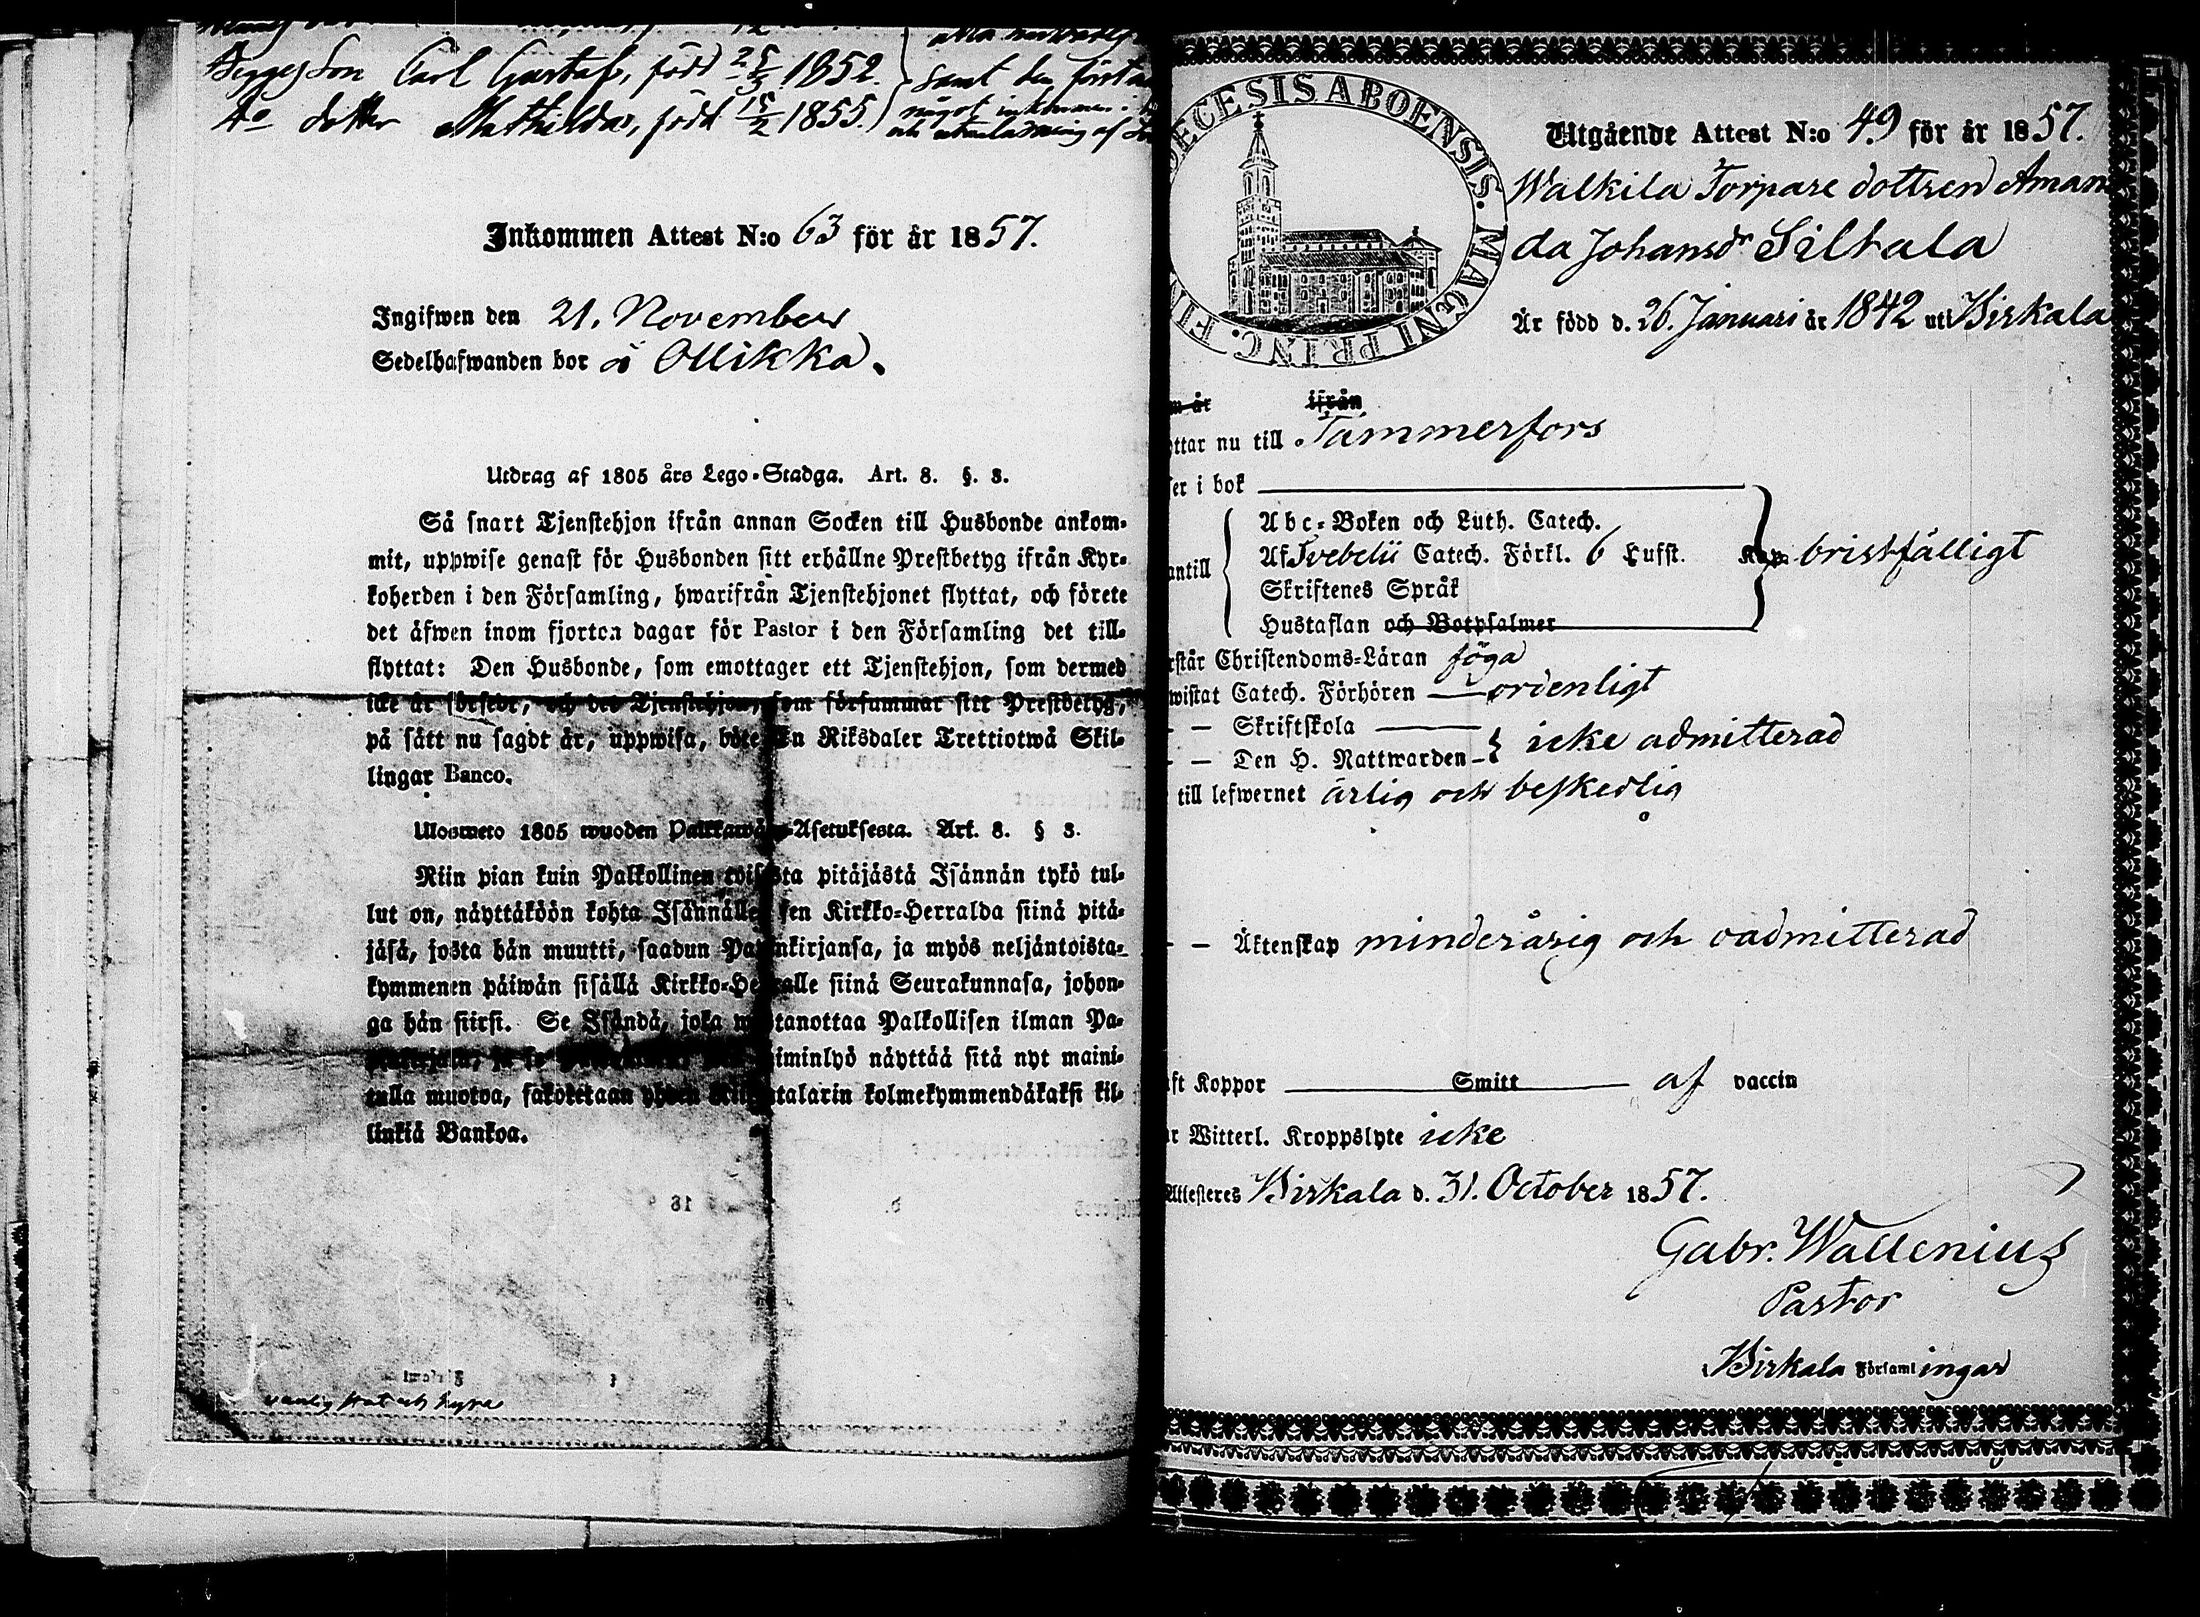 Begges Son Carl Gustaf, född 25/3 1852.
Do dotter Mathilda, född 15/2 1855.
samt den första
något inkommen.
Inkommen Attest N:o 63 för år 1857.
Ingifwen den 21. November
Sedelhafwanden bor å Ollikka.
Utdrag af 1805 års Lego-Stadga. Art. 8. §. 3.
Så snart Tjenstehjon ifrån annan Socken till Husbonde ankom-
mit, uppwise genast för Husbonden sitt erhållne Prestbetyg ifrån Kyr-
koherden i den Församling, hwarifrån Tjenstehjonet flyttat, och förete
det äfwen inom fjorton dagar för Pastor i den Församling det till-
flyttat: Den Husbonde, som emottager ett Tjenstehjon, som dermed
icke är försedt, och det Tjenstehjon, som försummar sitt Prestbetyg,
på sätt nu sagdt är, uppwisa, böte En Riksdaler Trettiotwå Skil-
lingar Banco.
Ulosweto 1805 wuoden Palkkawäen-Asetuksesta. Art. 8. § 3.
Niin pian kuin Palkollinen toisesta pitäjästä Isännän tykö tul-
lut on, näyttäköön kohta Isännälle sen Kirkko-Herralda siinä pitä-
jäsä, josta hän muutti, saadun Papinkirjansa, ja myös neljäntoista-
kymmenen päiwän sisällä Kirkko-Herralle siinä Seurakunnasa, johon-
ga hän siirsi. Se Isändä, joka wastanottaa Palkollisen ilman Pa-
pinkirjata, ja se laiminlyö näyttää sitä nyt maini-
tulla muotoa, sakoketaan yhden Riikintalarin kolmekymmendäkaksi kil-
linkiä Bankoa.
18
wanlig stat och hyra
DECESIS ABOENSIS. MAGNI PRINC. FIN
Utgående Attest N:o 49 för år 1857.
Walkila Torpare dottren Aman
da Johansdr Siltala
Är född d. 26. Januari år 1842 uti Birkala
m år ifrån
ttar nu till Tammerfors
ser i bok
antill
Abc-Boken och Luth. Catech.
Af Svebelii Catech. Förkl. 6 Hufst. Kap. bristfälligt
Skriftenes Språk
Hustaflan och Botpsalmer
rstår Christendoms-Läran föga
wistat Catech. Förhören ordenligt
— — Skriftskola
— — Den H. Nattwarden icke admitterad
till lefwernet ärlig och beskedlig
— — Äktenskap minderårig och oadmitterad
aft Koppor Smitt af vaccin
r Witterl. Kroppslyte icke
Attesteres Birkala d. 31. October 1857.
Gabr. Wallenius
Pastor
Birkala Församlingar